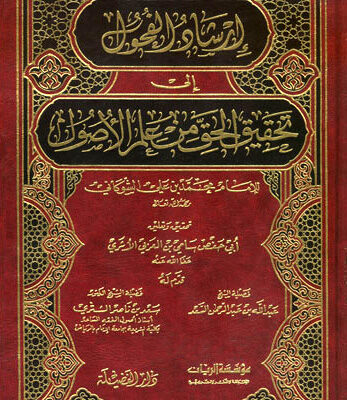 إرشاد الفحول
إلى
تحقيق الحق من علم الأصول
للإمام محمد بن علي الشوكاني
تحقيق وتعليق
أبي حفص سامي بن العربي الأثري
عفا الله عنه
قدم له
فضيلة الشيخ
عبد الله بن عبد الرحمن السعد
فضيلة الشيخ الدكتور
سعد بن ناصر الشثري
مؤسسة الريان
دار الفضيلة